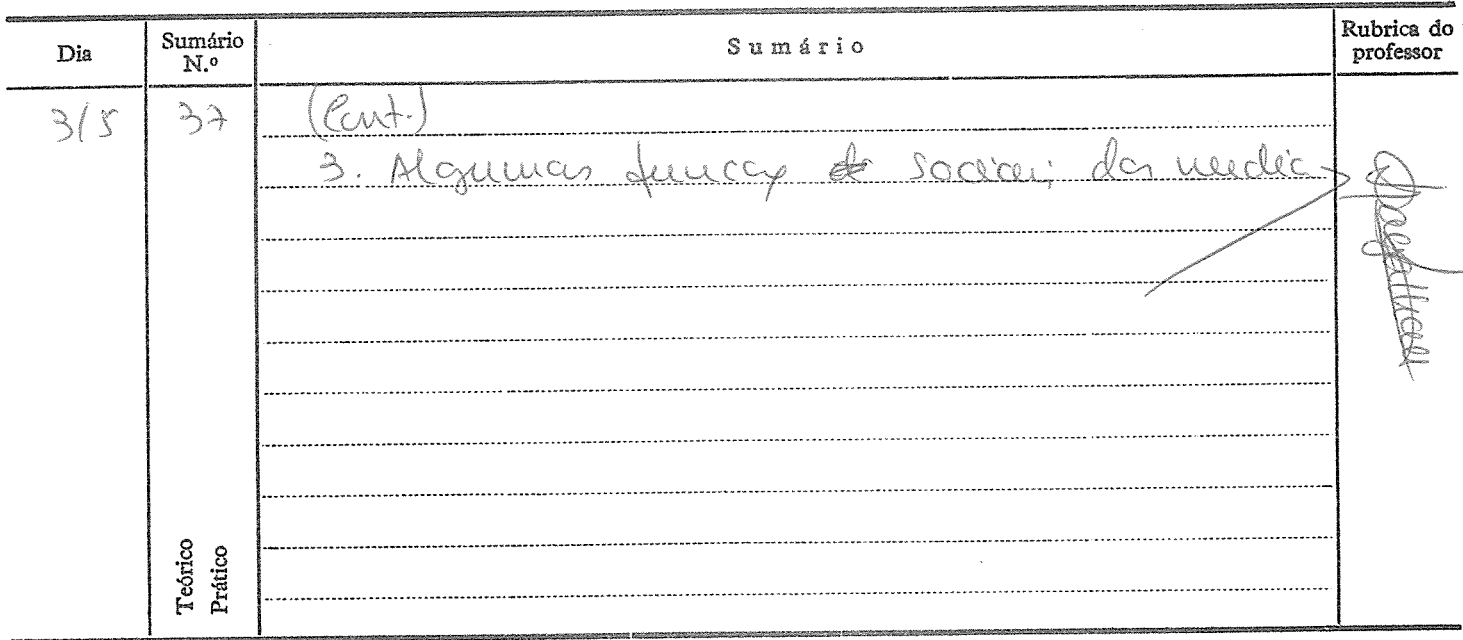 Dia Sumário N.º Sumário Rubrica do professor
3/5 37 (Cont.)
3. Algumas funções sociais dos media
Teórico
Prático